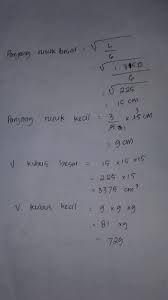 Panjang rusuk besar = √L/6
= √1.350/6
= √225
= 15 cm
Panjang rusuk kecil = 3/5 × 15 cm
= 9 cm
V kubus besar = 15 × 15 × 15
= 225 × 15
= 3375 cm³
V. kubus kecil = 9 × 9 × 9
= 81 × 9
= 729